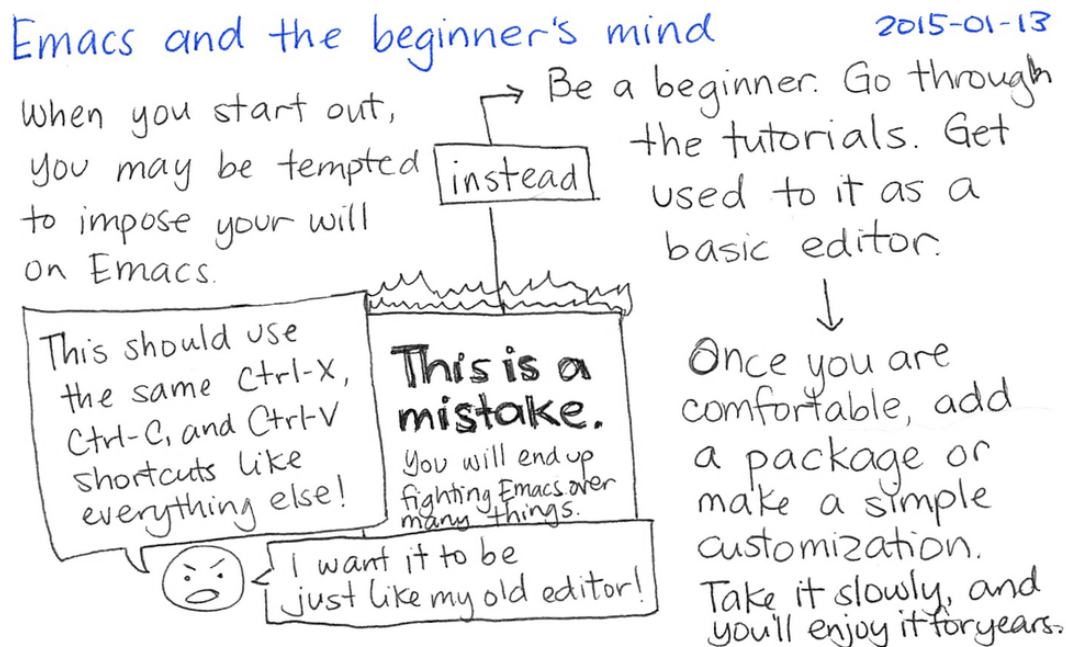 Emacs and the beginner's mind
2015-01-13
When you start out,
you may be tempted
to impose your will
on Emacs.
This should use
the same Ctrl-X,
Ctrl-C, and Ctrl-V
shortcuts like
everything else!
I want it to be
just like my old editor!
This is a
mistake.
You will end up
fighting Emacs over
many things.
instead
Be a beginner. Go through
the tutorials. Get
used to it as a
basic editor.
Once you are
comfortable, add
a package or
make a simple
customization.
Take it slowly, and
you'll enjoy it for years.